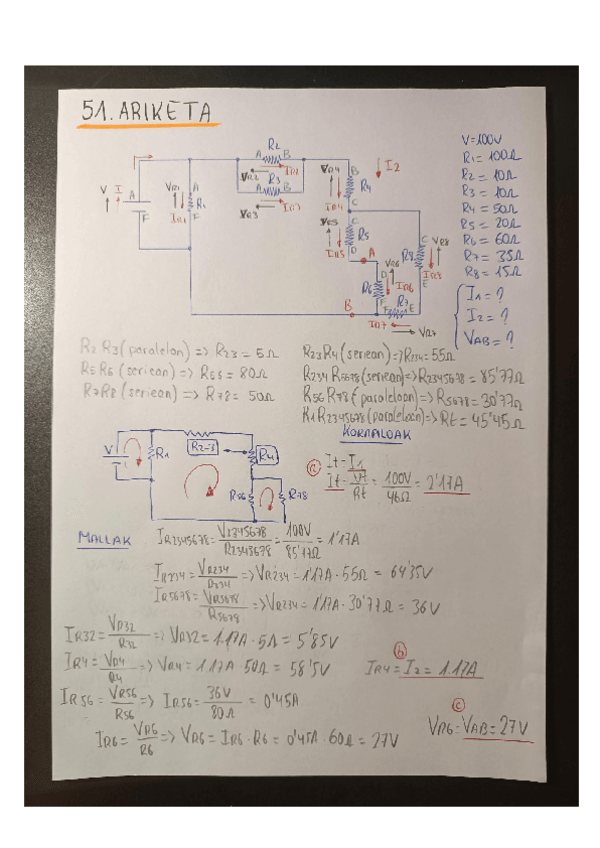 51. ARIKETA
V=100V
R1=100Ω
R2=10Ω
R3=10Ω
R4=50Ω
R5=20Ω
R6=60Ω
R7=35Ω
R8=15Ω
I1=?
I2=?
VAB=?
V I A F
VR1 A R1 IR1 F
R2 A B
VR2 IR2
R3 A B
VR3 IR3
VR4 B R4 IR4 C
I2
VR5 C R5 IR5 D
A
VR6 D R6 IR6 F
C R8 VR8 IR8 E
B
F R7 E
IR7 VR7
R2 R3 (paraleloan) => R23 = 5Ω
R5 R6 (seriean) => R56 = 80Ω
R7 R8 (seriean) => R78 = 50Ω
R23 R4 (seriean) => R234 = 55Ω
R234 R5678 (seriean) => R2345678 = 85'77Ω
R56 R78 (paraleloan) => R5678 = 30'77Ω
R1 R2345678 (paraleloan) => Rt = 45'45Ω
KORAPILOAK
V R1 R2-3 R4 R56 R78
a It = I1
It = Vt/Rt = 100V/46Ω = 2'17A
MALLAK
IR2345678 = V2345678/R2345678 = 100V/85'77Ω = 1'17A
IR234 = VR234/R234 => VR234 = 1'17A · 55Ω = 64'35V
IR5678 = VR5678/R5678 => VR234 = 1'17A · 30'77Ω = 36V
IR32 = VR32/R32 => VR32 = 1.17A · 5Ω = 5'85V
IR4 = VR4/R4 => VR4 = 1.17A · 50Ω = 58'5V
b
IR4 = I2 = 1.17A
IR56 = VR56/R56 => IR56 = 36V/80Ω = 0'45A
c
VR6 = VAB = 27V
IR6 = VR6/R6 => VR6 = IR6 · R6 = 0'45A · 60Ω = 27V